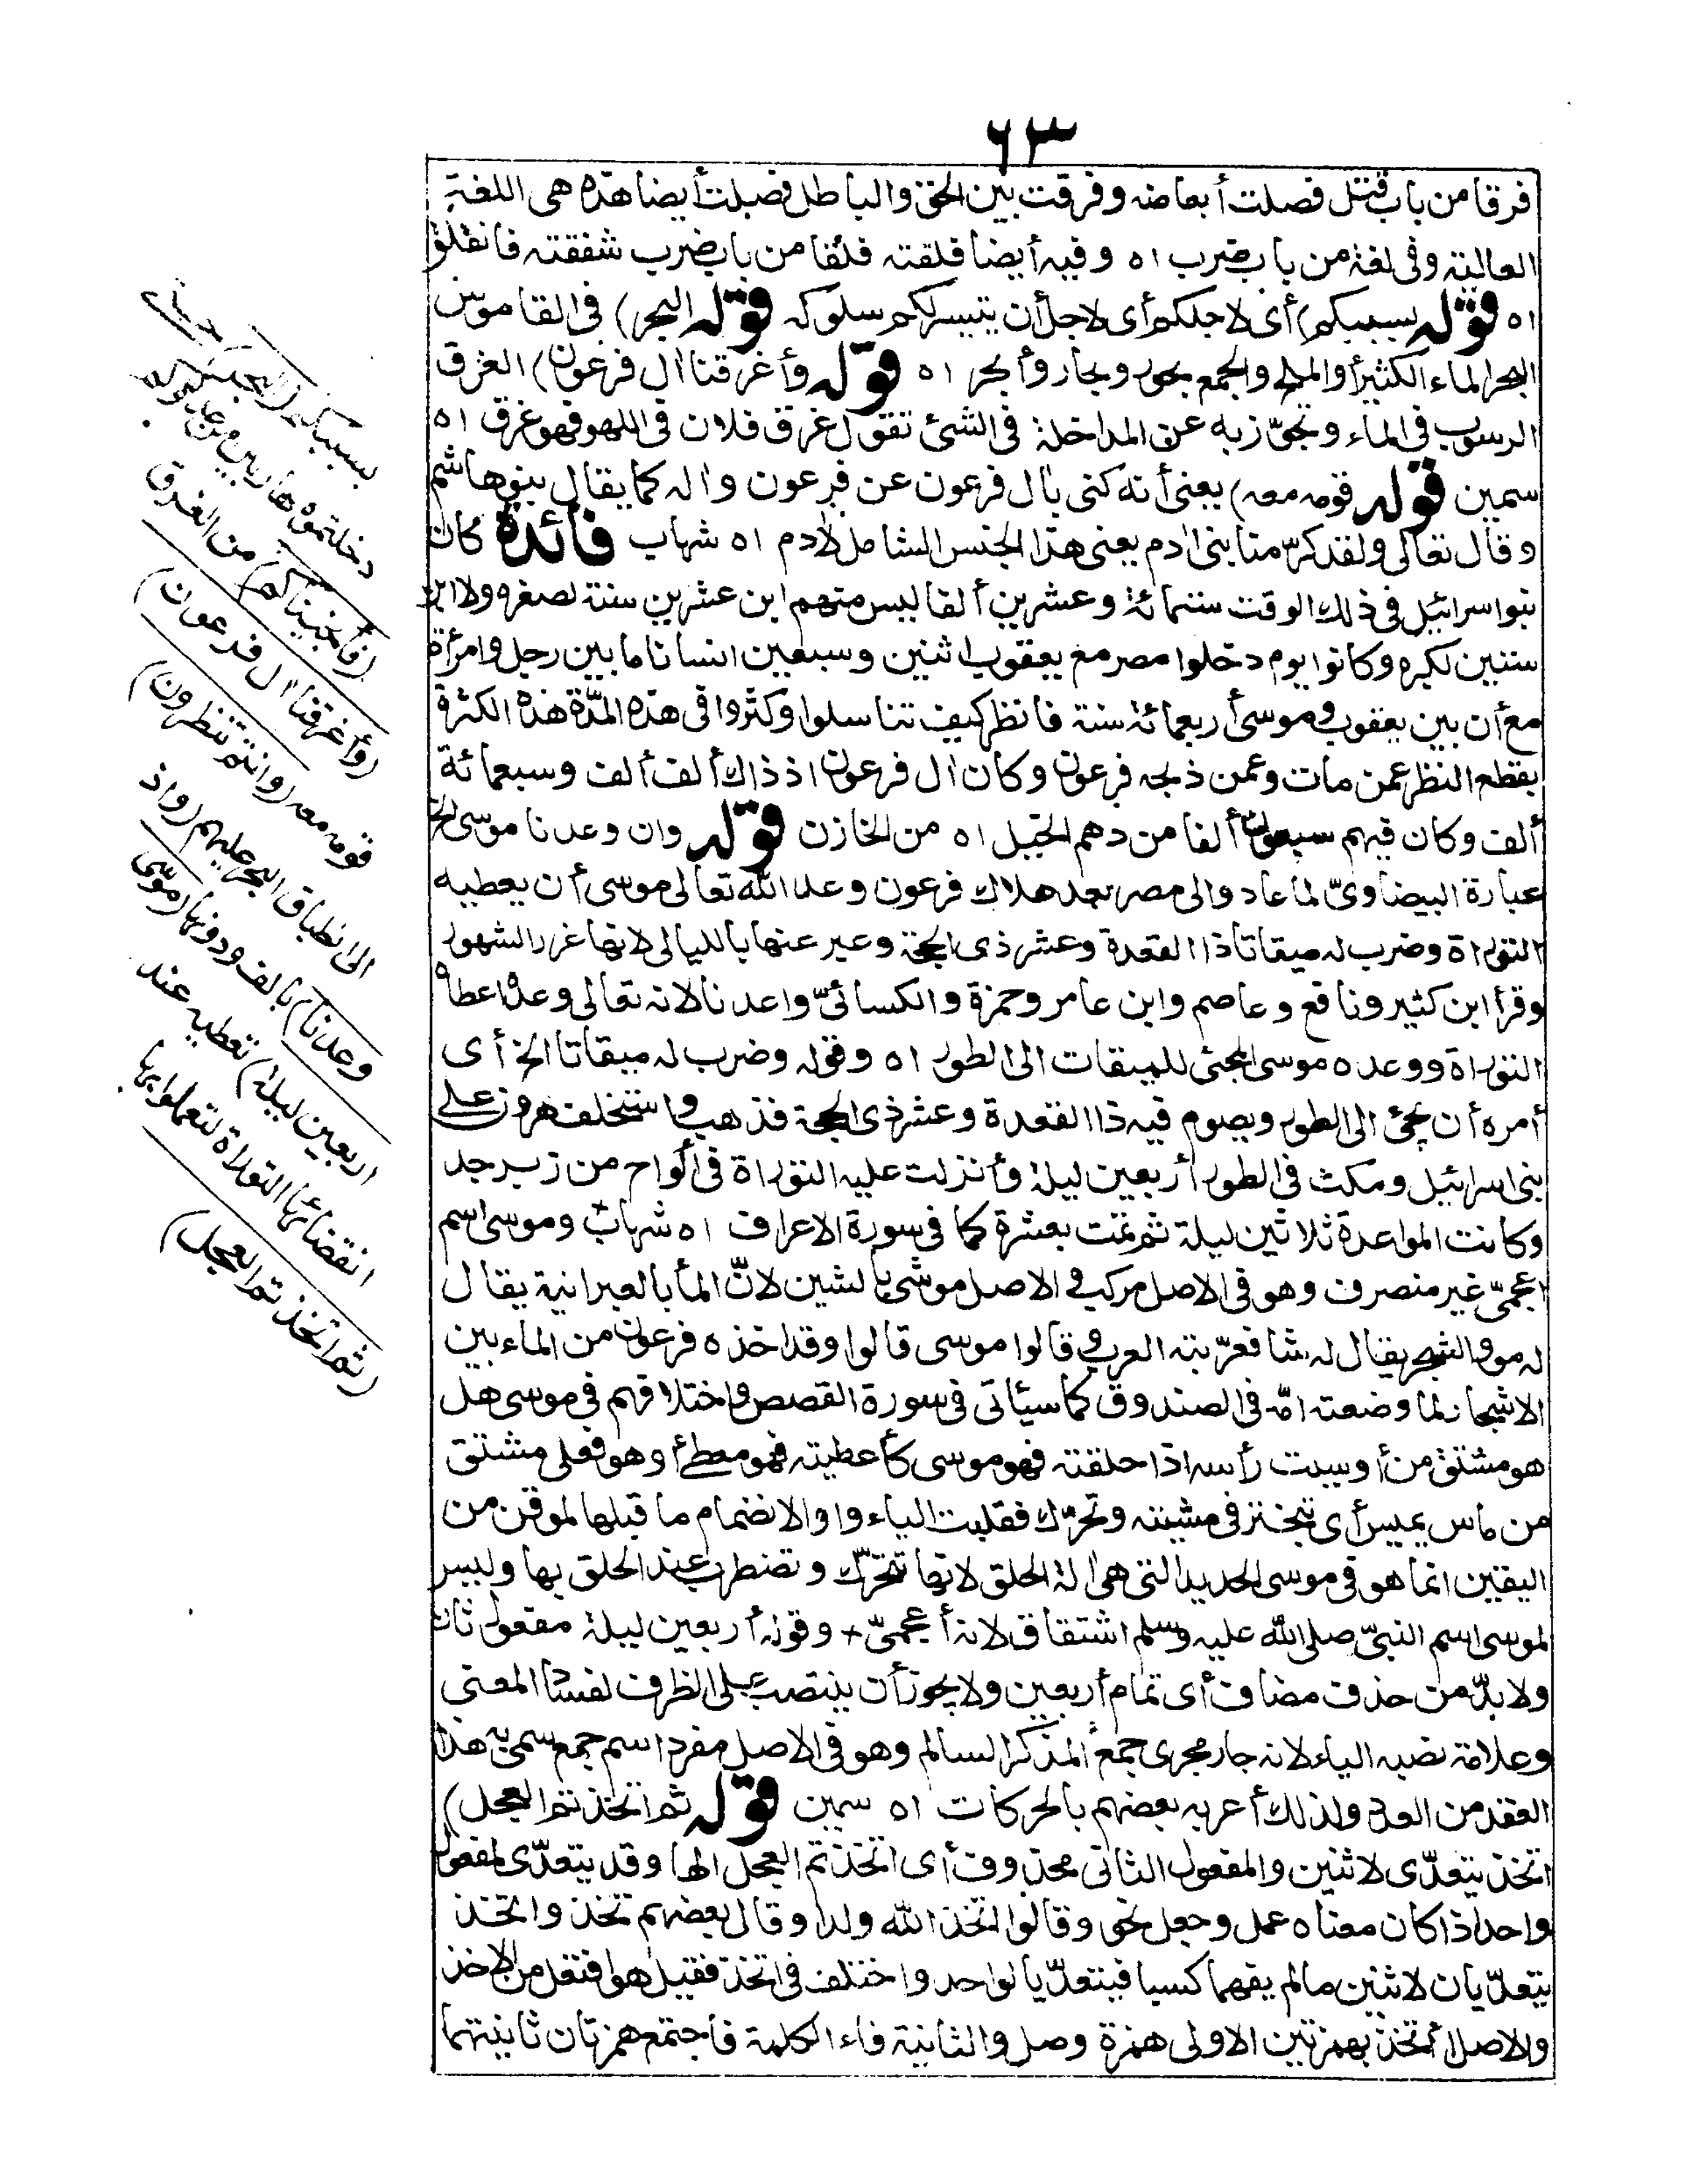 ٦٣
فرقا من باب قتل فصلت أبعاضه وفرقت بين الحق والباطل فصلت أيضا هذه هى اللغة
العالية وفى لغة من باب ضرب اه وفيه أيضا فلقته فلقا من باب ضرب شققته فانفلق
اه قوله بسببكم) أى لاجلكم أى لاجل أن يتيسر لكم سلوكه قوله البحر) فى القاموس
البحر الماء الكثير أو الملح والجمع بحور وبحار وأبحر اه قوله وأغرقنا اٰل فرعون) الغرق
الرسوب فى الماء وتجوّز به عن المداخلة فى الشئ تقول غرق فلان فى اللهو فهو غرق اه
سمين قوله قومه معه) يعنى أنه كنى بٰال فرعون عن فرعون واٰله كما يقال بنو هاشم
وقال تعالى ولقد كرّمنا بنى اٰدم يعنى هذا الجنس الشامل لاٰدم اه شهاب فائدة كان
بنوا سرائيل فى ذلك الوقت ستمائة وعشرين ألفا ليس منهم ابن عشرين سنة لصغره ولا ابن
ستين لكبره وكانوا يوم دخلوا مصر مع يعقوب اثنين وسبعين انسانا ما بين رجل وامرأة
مع أن بين يعقوب وموسى أربعمائة سنة فانظر كيف تناسلوا وكثروا فى هذه المدّة هذه الكثرة
بقطع النظر عمن مات وعمن ذبحه فرعون وكان اٰل فرعون اذ ذاك ألف ألف وسبعمائة
ألف وكان فيهم سبعون ألفا من دهم الخيل اه من الخازن قوله وان وعدنا موسى الخ
عبارة البيضاوىّ لما عادوا الى مصر بعد هلاك فرعون وعد الله تعالى موسى أن يعطيه
التوراة وضرب له ميقاتا ذا القعدة وعشر ذى الحجة وعبر عنها بالليالى لانها غرر الشهور
وقرأ ابن كثير ونافع وعاصم وابن عامر وحمزة والكسائىّ واعدنا لانه تعالى وعده اعطاه
التوراة ووعده موسى المجئ للميقات الى الطور اه وقوله وضرب له ميقاتا الخ أى
أمره أن يجئ الى الطور ويصوم فيه ذا القعدة وعشر ذى الحجة فذهب واستخلف هرون على
بنى اسرائيل ومكث فى الطور أربعين ليلة وأنزلت عليه التوراة فى ألواح من زبرجد
وكانت المواعدة ثلاثين ليلة ثم تمت بعشرة كما فى سورة الاعراف اه شهاب وموسى اسم
اعجمىّ غير منصرف وهو فى الاصل مركب و الاصل موشى بالشين لانّ الماٰ بالعبرانية يقال
له مو والشجر يقال له شا فعرّبته العرب وقالوا موسى قالوا وقد اخذه فرعون من الماء بين
الاشجار لما وضعته امّه فى الصندوق كما سيأتى فى سورة القصص واختلافهم فى موسى هل
هو مشتق من أوسيت رأسه اذا حلقته فهو موسى كأعطيته فهو معطى أو هو فعلى مشتق
من ماس يميس أى تبختر فى مشيته وتحرّك فقلبت الياء واوا لانضمام ما قبلها لموقن من
اليقين انما هو فى موسى الحديد التى هى اٰلة الحلق لانها تتحرّك وتضطرب عند الحلق بها وليس
لموسى اسم النبىّ صلى الله عليه وسلم اشتقاق لانه أعجمىّ + وقوله أربعين ليلة مفعول ثان
ولا بدّ من حذف مضاف أى تمام أربعين ولا يجوز أن ينتصب على الظرف لفساد المعنى
وعلامة نصبه الياء لانه جار مجرى جمع المذكر السالم وهو فى الاصل مفرد اسم جمع سمى به هذا
العقد من العدد ولذلك أعربه بعضهم بالحركات اه سمين قوله ثم اتخذتم العجل)
اتخذ يتعدّى لاثنين والمفعول الثانى محذوف أى اتخذتم العجل الها وقد يتعدّى لمفعول
واحد اذا كان معناه عمل وجعل نحو وقالوا اتخذ الله ولدا وقال بعضهم تخذ واتخذ
يتعدّيان لاثنين ما لم يفهما كسبا فيتعدّيا لواحد واختلف فى اتخذ فقيل هو افتعل من الاخذ
والاصل أاتخذ بهمزتين الاولى همزة وصل والثانية فاء الكلمة فاجتمع همزتان ثانيتهما
بسببكم (البحر)
دخلتموه هاربين من عدوكم
(فأنجيناكم) من الغرق
(وأغرقنا اٰل فرعون)
قومه معه (وانتم تنظرون)
الى انطباق البحر عليهم (واذ
وعدنا) بالف ودونها (موسى
اربعين ليلة) نعطيه عند
انقضائها التوراة لتعملوا بها
(ثم اتخذتم العجل)